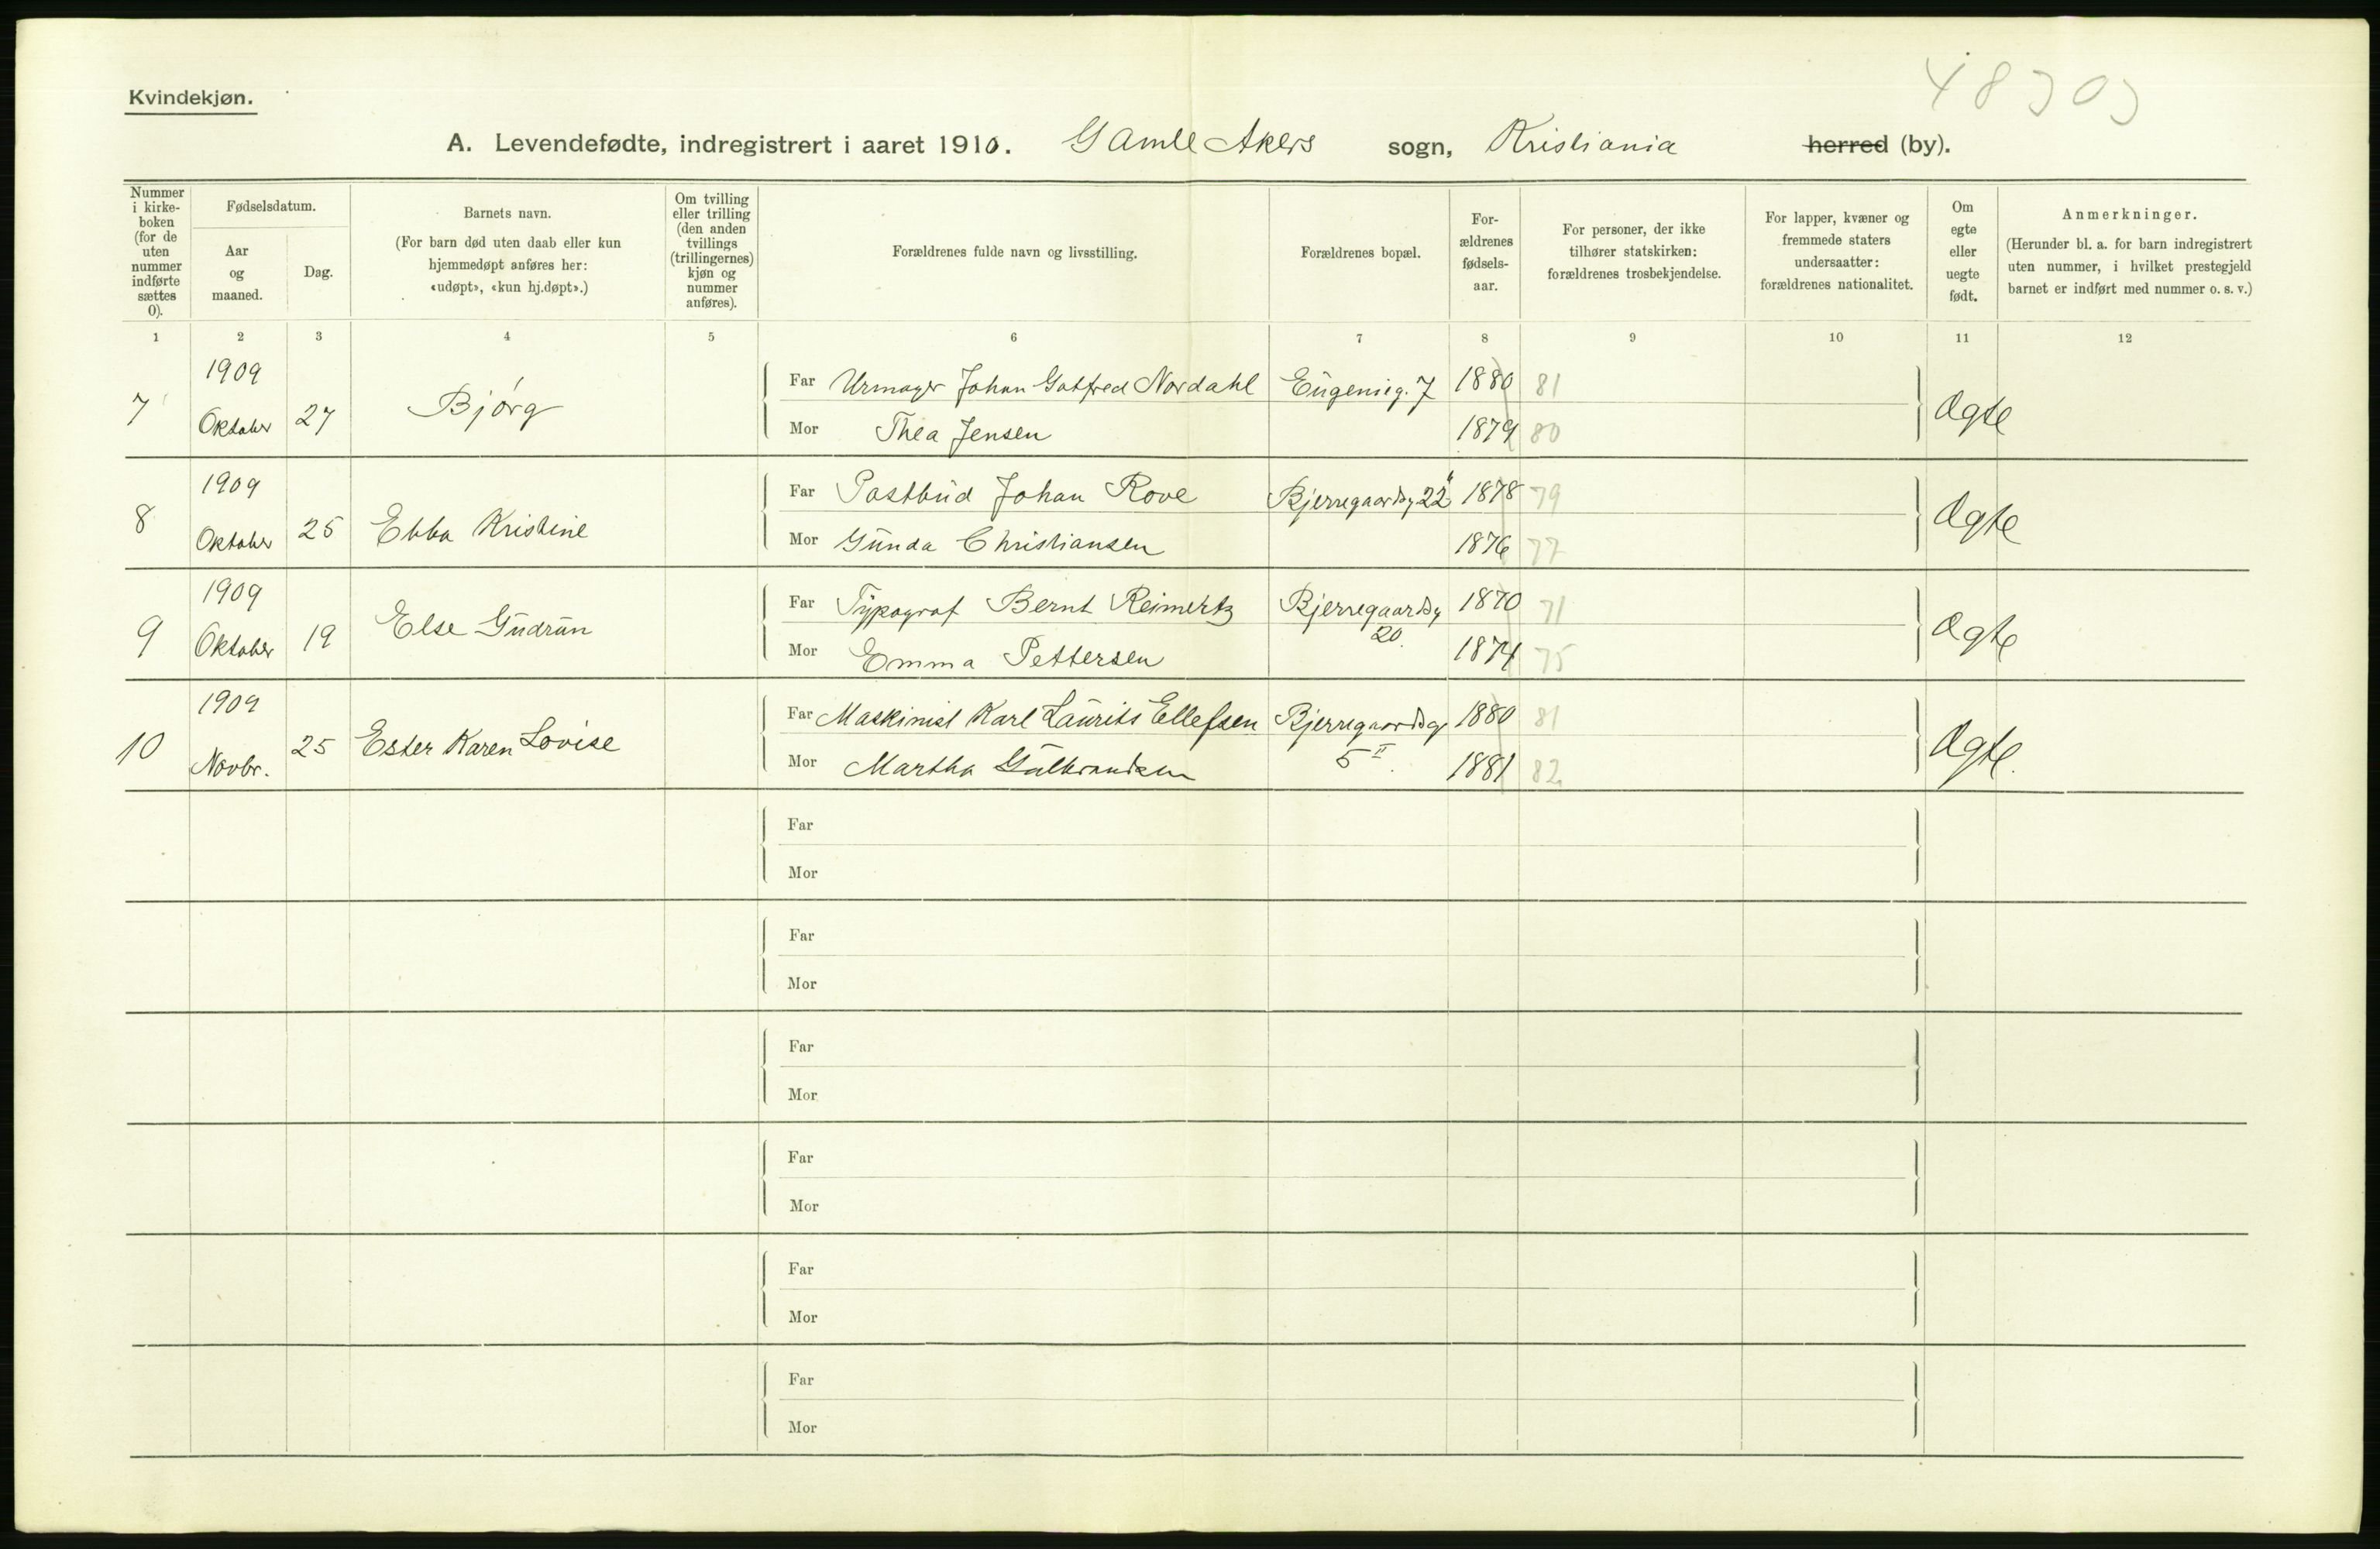 48303
Kvindekjøn.
A. Levendefødte, indregistrert i aaret 1910. Gamle Akers sogn, Kristiania herred (by).
Nummer i kirkeboken (for de uten nummer indførte sættes 0).
Fødselsdatum.
Aar og maaned.
Dag.
Barnets navn.
(For barn død uten daab eller kun hjemmedøpt anføres her: «udøpt», «kun hj.døpt».)
Om tvilling eller trilling (den anden tvillings (trillingernes) kjøn og nummer anføres).
Forældrenes fulde navn og livsstilling.
Forældrenes bopæl.
Forældrenes fødselsaar.
For personer, der ikke tilhører statskirken: forældrenes trosbekjendelse.
For lapper, kvæner og fremmede staters undersaatter: forældrenes nationalitet.
Om egte eller uegte født.
Anmerkninger.
(Herunder bl. a. for barn indregistrert uten nummer, i hvilket prestegjeld barnet er indført med nummer o. s. v.)
1 2 3 4 5 6 7 8 9 10 11 12
7 1909 Oktober 27 Bjørg Far Urmager Johan Gotfred Nordahl Eugenieg. 7 1880 81 Ægte
Mor Thea Jensen 1879 80
8 1909 Oktober 25 Ebba Kristine Far Postbud Johan Rove Bjerregaardsg 22 1878 79 Ægte
Mor Gunda Christiansen 1876 77
9 1909 Oktober 19 Else Gudrun Far Typograf Bernt Reimertz Bjerregaardsg 20. 1870 71 Ægte
Mor Emma Pettersen 1874 75
10 1909 Novbr. 25 Ester Karen Lovise Far Maskinist Karl Laurits Ellefsen Bjerregaardsg 5 II. 1880 81 Ægte.
Mor Martha Gulbrandsen 1881 82
Far
Mor
Far
Mor
Far
Mor
Far
Mor
Far
Mor
Far
Mor